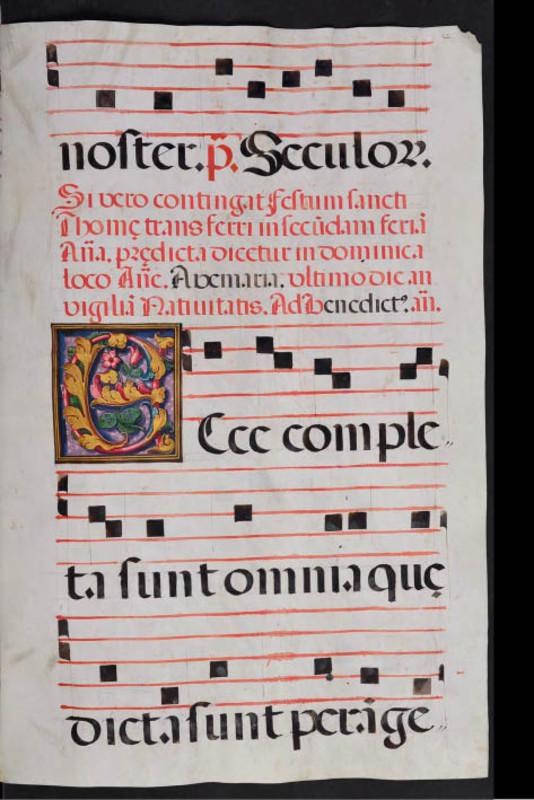 noster. p̃. Seculoꝝ.
Si vero contingat festum sancti
Thomę transferri in secūdam feriā
Aña. prędicta dicetur in dominica
loco Añe. Ave maria. ultimo die an
vigiliā Nativitatis. Ad Benedictꝰ. añ.
Ecce comple
ta sunt omnia quę
dicta sunt per ange